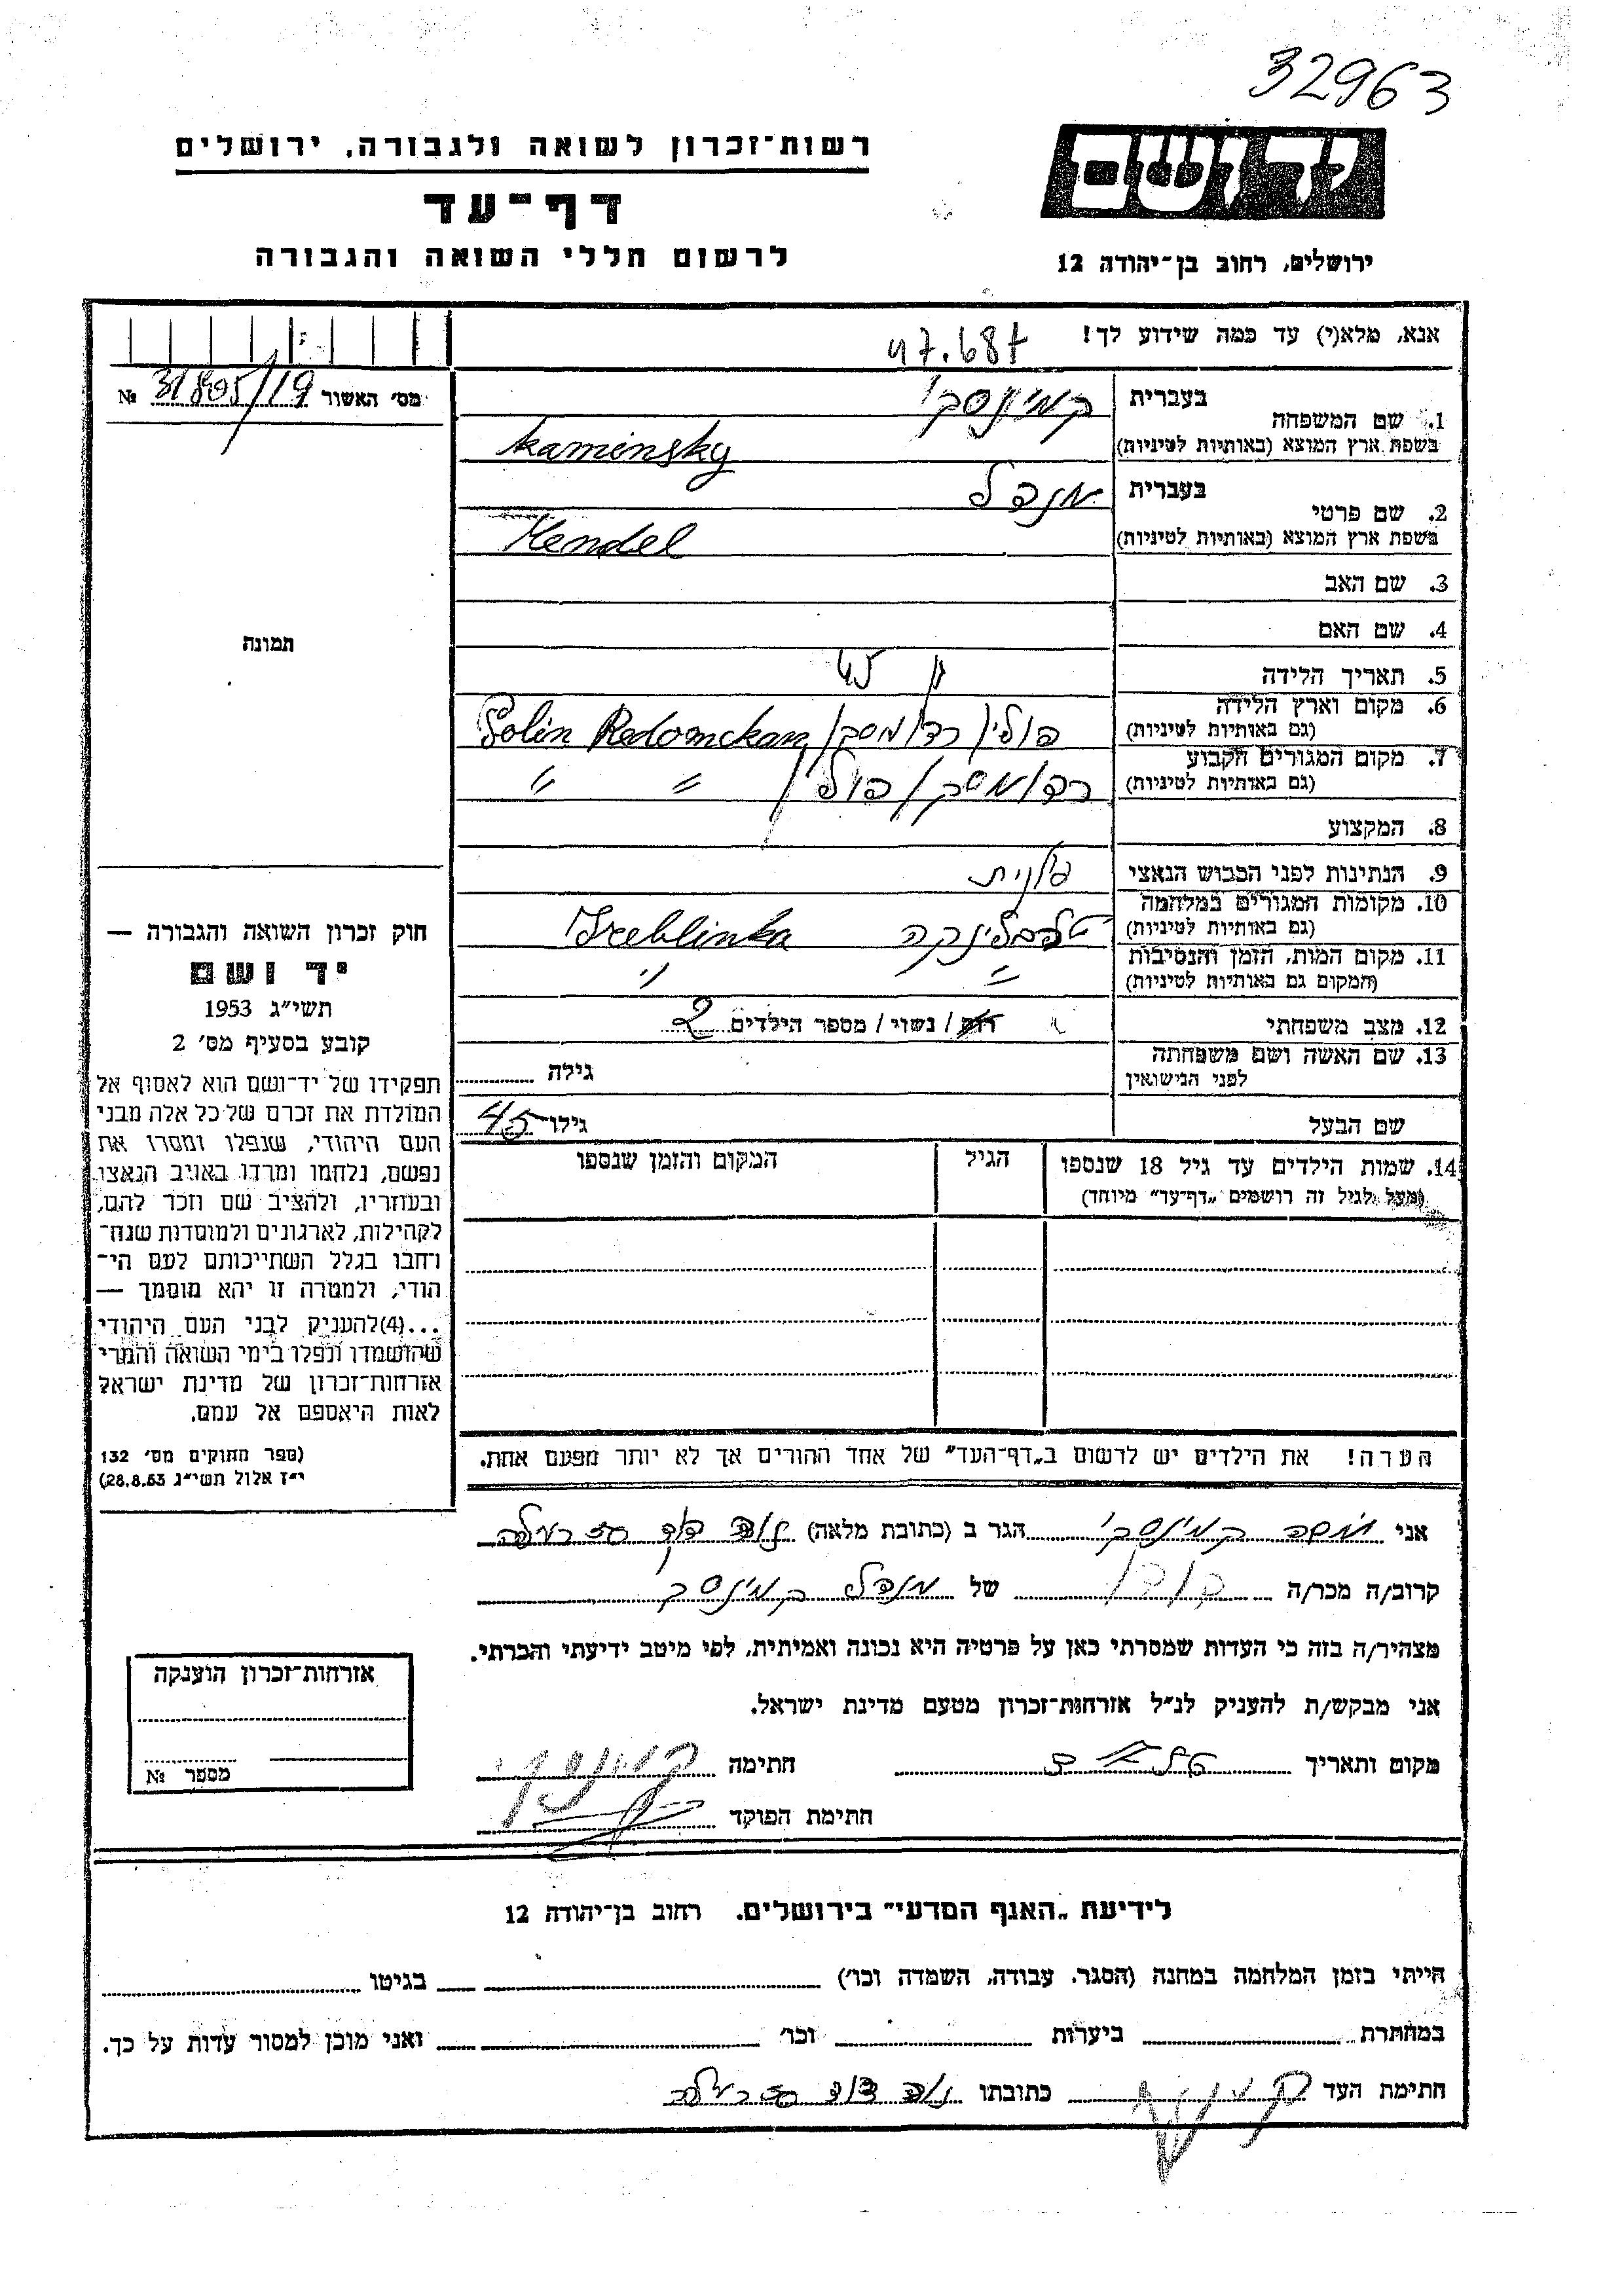 32963
יד ושם
רשות־זכרון לשואה ולגבורה, ירושלים
דף־עד
לרשום חללי השואה והגבורה
ירושלים, רחוב בן־יהודה 12
אנא, מלא(י) עד כמה שידוע לך!
47.687
מס׳ האשור 31805/19 №
1. שם המשפחה
בעברית קמינסקי
בשפת ארץ המוצא (באותיות לטיניות) Kaminsky
2. שם פרטי
בעברית מנדל
בשפת ארץ המוצא (באותיות לטיניות) Mendel
3. שם האב
4. שם האם
תמונה
5. תאריך הלידה 45
6. מקום וארץ הלידה
(גם באותיות לטיניות) פולין רדומסק Polin
7. מקום המגורים הקבוע
(גם באותיות לטיניות) רדומסק פולין " "
8. המקצוע
9. הנתינות לפני הכבוש הנאצי פולנית
10. מקומות המגורים במלחמה
(גם באותיות לטיניות) טרבלינקה Treblinka
11. מקום המות, הזמן והנסיבות
(המקום גם באותיות לטיניות) " "
12. מצב משפחתי רווק / נשוי / מספר הילדים 2
13. שם האשה ושם משפחתה
לפני הנישואין גילה
שם הבעל גילו 45
14. שמות הילדים עד גיל 18 שנספו
(מעל לגיל זה רושמים „דף־עד״ מיוחד)
הגיל
המקום והזמן שנספו
חוק זכרון השואה והגבורה —
יד ושם
תשי״ג 1953
קובע בסעיף מס׳ 2
תפקידו של יד־ושם הוא לאסוף אל
המולדת את זכרם של כל אלה מבני
העם היהודי, שנפלו ומסרו את
נפשם, נלחמו ומרדו באויב הנאצי
ובעוזריו, ולהציב שם וזכר להם,
לקהילות, לארגונים ולמוסדות שנח־
רבו בגלל השתייכותם לעם הי־
הודי, ולמטרה זו יהא מוסמך —
...(4) להעניק לבני העם היהודי
שהושמדו ונפלו בימי השואה והמרי
אזרחות־זכרון של מדינת ישראל
לאות היאספם אל עמם.
(ספר החוקים מס׳ 132
י״ז אלול תשי״ג 28.8.53)
הערה! את הילדים יש לרשום ב„דף־העד״ של אחד ההורים אך לא יותר מפעם אחת.
אני משה קמינסקי הגר ב (כתובת מלאה)
קרוב/ה מכר/ה של מנדל קמינסקי
מצהיר/ה בזה כי העדות שמסרתי כאן על פרטיה היא נכונה ואמיתית, לפי מיטב ידיעתי והכרתי.
אני מבקש/ת להעניק לנ״ל אזרחות־זכרון מטעם מדינת ישראל.
מקום ותאריך חתימה קמינסקי
חתימת הפוקד
אזרחות־זכרון הוענקה
מספר №
לידיעת „האגף המדעי״ בירושלים. רחוב בן־יהודה 12
הייתי בזמן המלחמה במחנה (הסגר, עבודה, השמדה וכו׳) בגיטו
במחתרת ביערות וכו׳ ואני מוכן למסור עדות על כך.
חתימת העד כתובתו